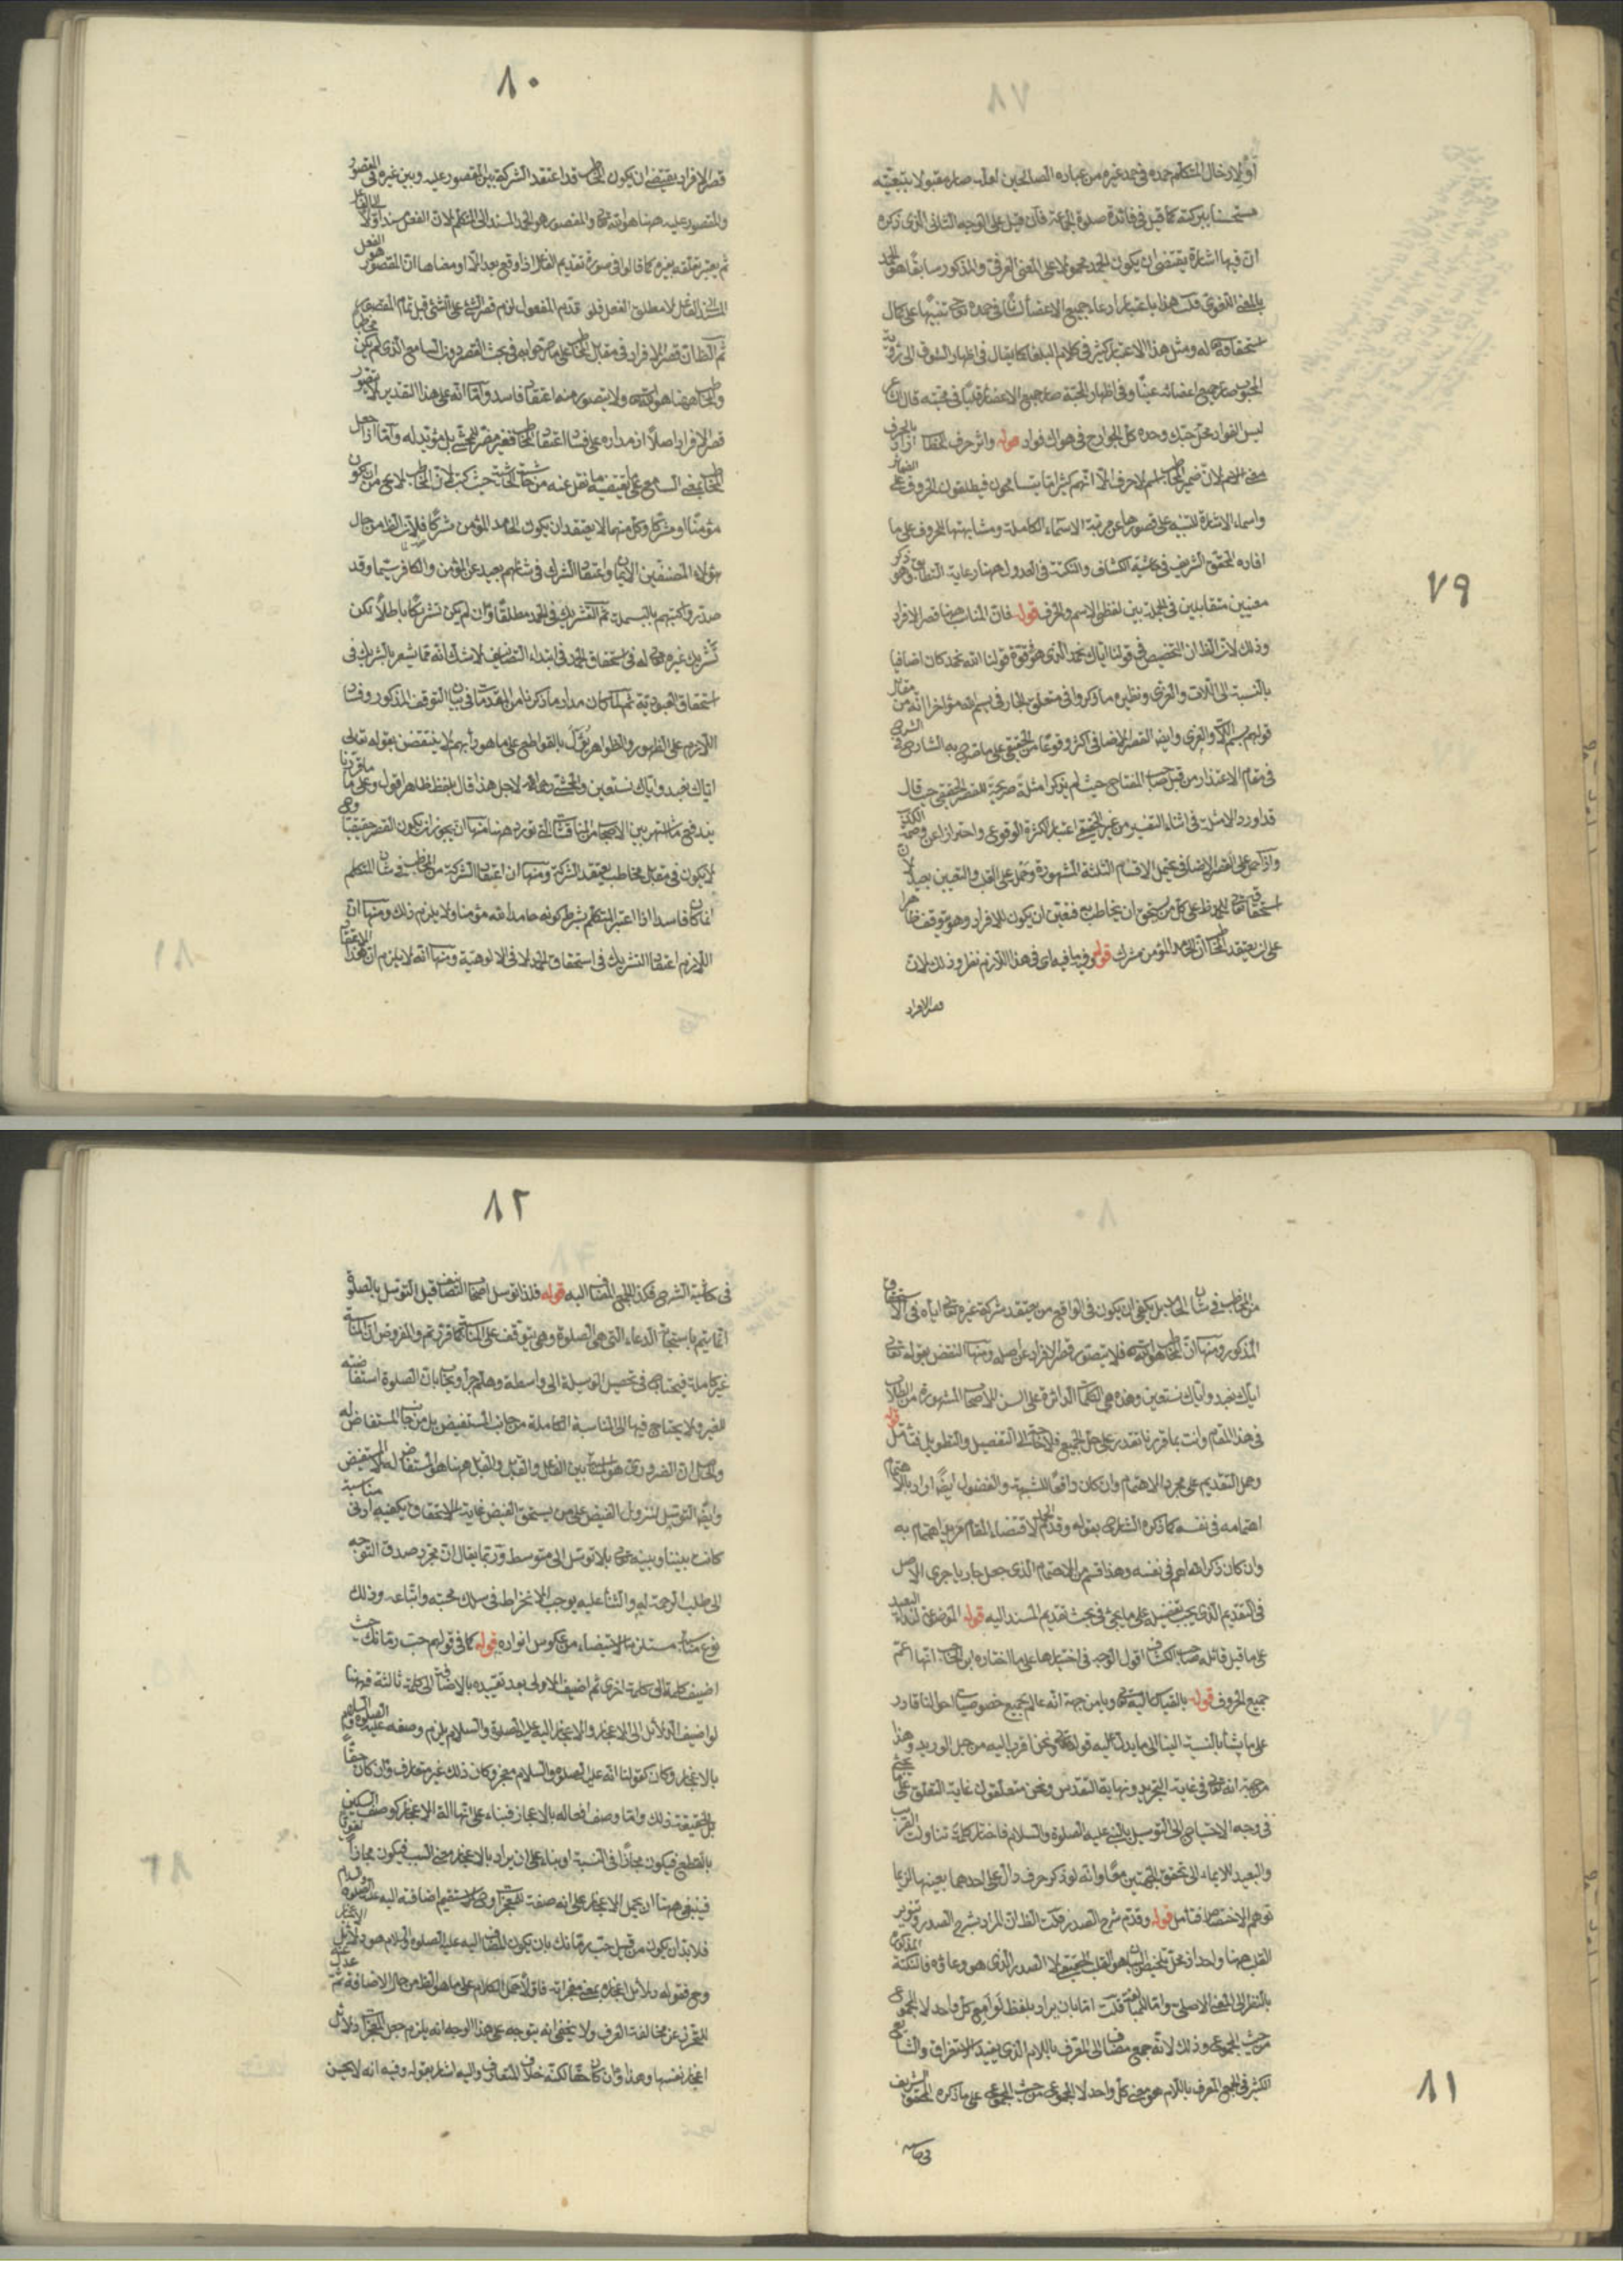 ٧٩
أو لإدخال المتكلم حمده في حمد غيره من عباده الصالحين لعله صار مقبولا بتبعيته
ببركته كما قيل في فائدة صلوة الجماعة فان قيل على الوجه الثاني الذي ذكره
ان فيها اشارة يقتضى ان يكون الحمد محمولا على المعنى العرفى والمذكور سابقا هو الحمد
بالمعنى اللغوى قلت هذا باعتبار ادعاء جميع الاعضاء لسانا في حمده تعالى تنبيها على كمال
استحقاقه له ومثل هذا الاعتبار كثير في كلام البلغاء كما يقال في اظهار الشوق الى
المحبوب صار جميع اعضائه عينا وفي اظهار المحبة صار جميع الاعضاء قلبا في محبته قال
ليس الفواد محل حبك وحده كل الجوارح في هواك فواد قوله واثر حرف الخطاب اراد بالحرف
الاسم لان ضمير المخاطب اسم لا حرف الا انهم كثيرا ما يتسامحون فيطلقون الحروف على الضمائر
واسماء الاشارة للتنبيه على قصورها عن مرتبة الاسماء الكاملة ومشابهتها للحروف على ما
افاده المحقق الشريف في حاشية الكشاف والنكتة في العدول ههنا رعاية التطابق
معنيين متقابلين في الجملة بين لفظي الاسم والحرف قوله فان المناسب ههنا قصر الافراد
وذلك لان الظ ان التخصيص في قولنا اياك نحمد الذي هو في قوة قولنا الله نحمد كان اضافيا
بالنسبة الى اللات والعزى ونظيره ما ذكروا في متعلق الجار في بسم الله مؤخرا انه من مقابل
قولهم بسم اللات والعزى وايضا القصر الاضافى اكثر وقوعا من الحقيقى على ما به الشارح في الشرح
في مقام الاعتذار من قبل صاحب المفتاح حيث لم يذكر امثلة صريحة للقصر الحقيقى حيث قال
قد اورد الامثلة في اثناء التفسير من غير الحقيقى اعتبارا لكثرة الوقوع واحترازا عن وصمة الكذب
واذا حمل على القصر الاضافى الاقسام الثلثة المشهورة وحمل على القلب والتعيين بعيد لان
على كل من يستحق ان يخاطب به فتعين ان يكون للافراد وهو يتوقف ظاهرا
على ان يعتقد المخاطب ان الحامد المؤمن مشرك قوله وفيه ما فيه اى في هذا اللازم نظر وذلك لان
قصر الافراد
٨٠
قصر الافراد يقتضى ان يكون المخاطب قد اعتقد الشركة بين المقصور عليه وبين غيره في المقصور
والمقصور عليه ههنا هو الله تعالى والمقصور هو الحمد المسند الى المتكلم لان الفعل يسند اولا الى الفاعل
ثم يعتبر تعلقه بغيره كما قالوا في صورة تقديم الفاعل اذا وقع بعد الا او معناها ان المقصور هو الفعل
المسند الى الفاعل لا مطلق الفعل فلو قدم المفعول لزم قصر الشئ على الشئ قبل تمام المقصور
ثم الظ ان قصر الافراد في مقابل المخاطب على ما صرحوا به في بحث القصر دون السامع الذي لم يكن مخاطبا
والمخاطب ههنا هو الله تعالى ولا يتصور منه اعتقاد فاسد واما انه على هذا التقدير لا يتصور
قصر الافراد اصلا اذ مداره على فساد اعتقاد المخاطب فغير مضر للمحشى بل مؤيد له واما اذا جعل
المخاطب السامع على ما نقل عنه من حاشية الحاشية حيث كتب لان المخاطب لا يخ من ان يكون
مؤمنا او مشركا وكل منهما لا يعتقد ان يكون الحامد المؤمن مشركا فلان الظ من حال
هؤلاء المصنفين الايمان واعتقاد الشرك في شانهم بعيد عن المؤمن والكافر سيما وقد
صدروا كتبهم بالبسملة ثم التشريك في الحمد مطلقا وان لم يكن تشريكا باطلا لكن
تشريك غيره تعالى له في استحقاق الحمد في ابتداء التصنيف لا شك انه مما يشعر بالشريك في
استحقاق العبودية ثم لما كان مدار ما ذكرنا من المقدمات في بيان التوقف المذكور وفساد
اللازم على الظهور والظواهر تترك بالقواطع على ما هو دأبهم لا ينتقض بقوله تعالى
اياك نعبد واياك نستعين والمحشى رحمه الله لاجل هذا قال بلفظ ظاهر اقول وعلى ما قررنا
يندفع ما اشتهر بين الاصحاب من المناقشات التي تورد ههنا منها انه يجوز ان يكون القصر حقيقيا وح
لا يكون في مقابل مخاطب يعتقد الشركة ومنها ان اعتقاد الشركة من المخاطب في شان المتكلم
انما كان فاسدا اذا اعتبر المتكلم بشرط كونه حامدا لله مؤمنا ولا يلزم ذلك ومنها ان
اللازم اعتقاد التشريك في استحقاق الحمد لا في الالوهية ومنها انه لا يلزم ان هذا الاعتقاد
٨١
من المخاطب في شان الحامد بل يكفى ان يكون في الواقع من يعتقد شركة غيره تعالى اياه في الاستحقاق
المذكور ومنها ان المخاطب هو الله تعالى فلا يتصور قصر الافراد عن اصله ومنها النقض بقوله تعالى
اياك نعبد واياك نستعين وهذه هي الكلمات الدائرة على السن الاصحاب المشهورة من الطلاب
في هذا المقام وانت بما قررنا تقدر على حل الجميع فلا حاجة الى التفصيل والتطويل فتأمل قوله
وحمل التقديم على مجرد الاهتمام وان كان دافعا للشبهة والفضول ايضا اراد بالاهتمام
اهتمامه في نفسه كما ذكره الشارح بقوله وقدم الحمد لاقتضاء المقام مزيد اهتمام به
وان كان ذكر الله اهم في نفسه وهذا قسم من الاهتمام الذي جعل جاريا مجرى الاصل
في التقديم الذي يجب تفصيله على ما يجئ في بحث تقديم المسند اليه قوله الموضوعة لنداء البعيد
على ما قيل قائله صاحب الكشاف اقول الوجه في اختيارها على ما اختاره ابن الحاجب انها اعم
جميع الحروف قوله بالقياس اليه تعالى ويا من جهة انه عالم بجميع خصوصيات احوالنا قادر
على ما يشاء بالنسبة الينا الى ما يدل عليه قوله تعالى ونحن اقرب اليه من حبل الوريد وهذا
من جهة انه تعالى في غاية التجرد ونهاية التقدس ونحن متعلقون غاية التعلق على ما يجئ
في وجه الاحتياج الى التوسل بالنبى عليه الصلوة والسلام فاختار كلمة تناولت القريب
والبعيد للايماء الى تحقق الجهتين معا وانه لو ذكر حرف دال على احدهما بعينها لربما
توهم الاختصاص فتامل قوله وقدم شرح الصدر قلت الظ ان المراد بشرح الصدر وتنوير
القلب ههنا واحد اذ محل تلخيص البيان هو القلب الحقيقى لا الصدر الذي هو وعاؤه فالنكتة المذكورة
بالنظر الى المعنى الاصلى واما المبالغة قلت امابان يراد بلفظ لوامع كل واحد لا المجموع
من حيث المجموع وذلك لانه جمع مضاف الى المعرف باللام الذي يفيد الاستغراق والشايع
الكثير في الجمع المعرف باللام هو معنى كل واحد لا المجموع من حيث المجموع على ما ذكره المحقق الشريف
في حاشية
٨٢
في حاشية الشرح فكذا الجمع المضاف اليه قوله فلذا توسل اصحاب التصانيف قيل التوسل بالصلوة
انما يتم باستجابة الدعاء التى هى الصلوة وهى يتوقف على المناسبة كما قررتم والمفروض ان المناسبة
غير كاملة فيحتاج في تحصيل الوسيلة الى واسطة وهلم جرا ويجاب بان الصلوة استفاضة
للغير ولا يحتاج فيها الى المناسبة الكاملة من جانب المستفيض بل من جانب المستفاض له
والحاصل ان الضرورى هو المناسبة بين الفاعل والقابل والقابل ههنا هو المستفاض له لا المستفيض
وايضا التوسل لنزول الفيض على من يستحق الفيض غاية الاستحقاق يكفيه ادنى مناسبة
كانت بيننا وبينه تعالى بلا توسل الى متوسط وربما يقال ان مجرد صدق التوجه
الى طلب الرحمة له والثناء عليه يوجب الانخراط في سلك محبته واتباعه وذلك
نوع مناسبة مستلزمة للاستضاءة من عكوس انواره قوله كما في قولهم حب رمانك حيث
اضيف كلمة الى كلمة اخرى ثم اضيف الاولى بعد تقييده بالاضافة الى كلمة ثالثة فههنا
لو اضيف الدلائل الى الاعجاز والاعجاز اليه عليه الصلوة والسلام يلزم وصفه عليه الصلوة والسلام
بالاعجاز وكان كقولنا انه عليه الصلوة والسلام معجز وكان ذلك غير متعارف وان كان حقا
بل الحقيقة ذلك واما وصف افعاله بالاعجاز فبناء على انها آلة الاعجاز كوصف السكين
بالقطع فيكون مجازا في النسبة او بناء على ان يراد بالاعجاز معنى السبب فيكون مجازا لغويا
فينبغى ههنا ان يحمل الاعجاز على انه صفة للمعجزات وح لا يستقيم اضافته اليه عليه الصلوة والسلام
فلا بد ان يكون من قبيل حب رمانك بان يكون المضاف اليه عليه الصلوة والسلام هو دلائل الاعجاز
وح فقوله دلائل اعجازه بمعنى معجزاته فان لا حمل الكلام على ما هو الظ من حال الاضافة ثم عدل
للتحرز عن مخالفة العرف ولا يخفى انه يتوجه على هذا الوجه انه يلزم جعل المعجزات دلائل
اعجاز نفسها وهذا وان كان حقا لكنه خلاف المتعارف واليه اشار بقوله وفيه انه لا يحسن